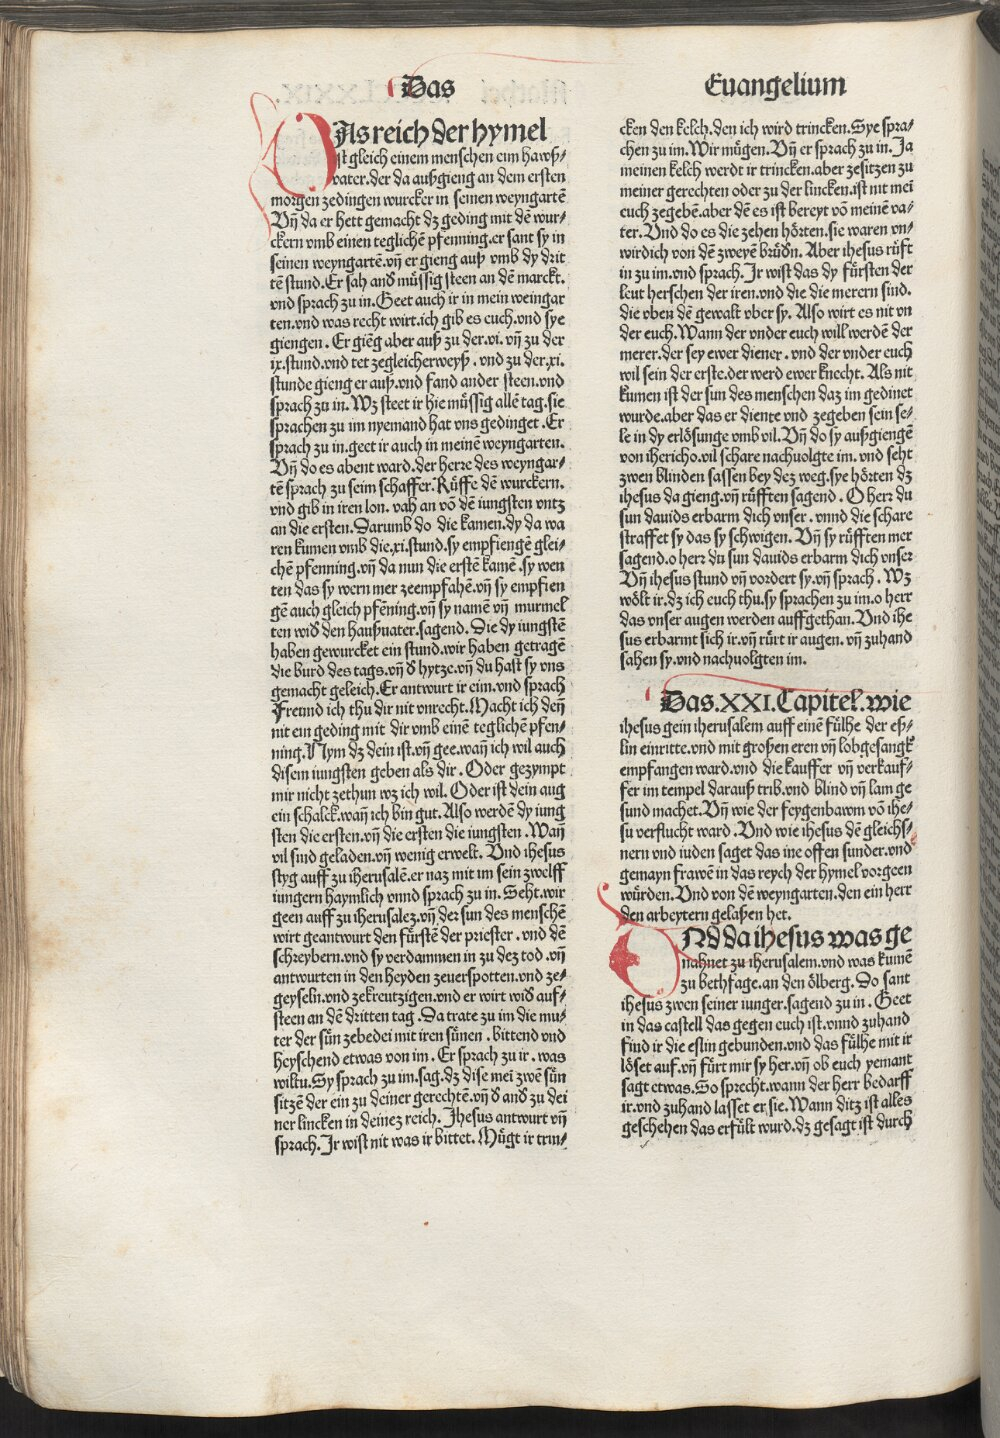 Das
Euangelium
DAs reich der hymel
ist gleich einem menschen eim hawß⸗
vater.der da außgieng an dem ersten
morgen zedingen wurcker in seinen weyngartē
Vn̄ da er hett gemacht dz geding mit dē wur⸗
ckern vmb einen teglichē pfenning.er sant sy in
seinen weyngartē.vn̄ er gieng auß vmb dy drit
tē stund.Er sah and̕ müssig steen an dē marckt.
vnd sprach zu in.Geet auch ir in mein weingar
ten.vnd was recht wirt.ich gib es euch.vnd sye
giengen. Er giēg aber auß zu der.vi. vn̄ zu der
ix.stund.vnd tet zegleicherweyß. vnd zu der.xi.
stunde gieng er auß.vnd fand ander steen.vnd
sprach zu in. Wz steet ir hie müssig allē tag.sie
sprachen zu im nyemand hat vns gedinget. Er
sprach zu in.geet ir auch in meinē weyngarten.
Vn̄ do es abent ward.der herre des weyngar⸗
tē sprach zu seim schaffer.Rüffe dē wurckern.
vnd gib in iren lon. vah an vō dē iungsten vntz
an die ersten.Darumb do die kamen.dy da wa
ren kumen vmb die.xi.stund.sy empfiengē glei⸗
chē pfenning.vn̄ da nun die erstē kamē.sy wen
ten das sy wern mer zeempfahē.vn̄ sy empfien
gē auch gleich pfēning.vn̄ sy namē vn̄ murmel
ten wid̕ den haußuater.sagend. Die dy iungstē
haben gewurcket ein stund.wir haben getragē
die burd des tags.vn̄ d̕ hytze.vn̄ du hast sy vns
gemacht geleich.Er antwurt ir eim.vnd sprach
Freund ich thu dir nit vnrecht.Macht ich den̄
nit ein geding mit dir vmb einē teglichē pfen⸗
ning.Nym dz dein ist.vn̄ gee.wan̄ ich wil auch
disem iungsten geben als dir. Oder gezympt
mir nicht zethun wz ich wil. Oder ist dein aug
ein schalck.wan̄ ich bin gut. Also werdē dy iung
sten die ersten.vn̄ die ersten die iungsten. Wan̄
vil sind geladen.vn̄ wenig erwelt. Vnd ihesus
styg auff zu iherusalē.er naz mit im sein zwelff
iungern haymlich vnnd sprach zu in. Seht.wir
geen auff zu iherusalez.vn̄ der sun des menschē
wirt geantwurt den fürstē der priester. vnd dē
schreybern.vnd sy verdammen in zu dez tod .vn̄
antwurten in den heyden zeuerspotten.vnd ze⸗
geyseln.vnd zekreutzigen.vnd er wirt wid̕ auf⸗
steen an dē dritten tag. Da trate zu im die mu⸗
ter der sün zebedei mit iren sünen. bittend vnd
heyschend etwas von im. Er sprach zu ir. was
wiltu.Sy sprach zu im.sag.dz dise mei zwē sün
sitzē der ein zu deiner gerechtē.vn̄ d̕ and̕ zu dei
ner lincken in deinez reich. Jhesus antwurt vn̄
sprach.Jr wist nit was ir bittet. Mügt ir trin⸗
cken den kelch.den ich wird trincken.Sye spra⸗
chen zu im.Wir mügen. Vn̄ er sprach zu in. Ja
meinen kelch werdt ir trincken.aber zesitzen zu
meiner gerechten oder zu der lincken.ist nit mei
euch zegebē.aber dē es ist bereyt vō meinē va⸗
ter. Vnd do es die zehen hörten.sie waren vn⸗
wirdich von dē zweyē brüd̕n. Aber ihesus rüft
in zu im.vnd sprach. Jr wist das dy fürsten der
leut herschen der iren.vnd die die merern sind.
die vben dē gewalt vber sy. Also wirt es nit vn
der euch.Wann der vnder euch will werdē der
merer.der sey ewer diener. vnd der vnder euch
wil sein der erste.der werd ewer knecht. Als nit
kumen ist der sun des menschen daz im gedinet
wurde.aber das er diente vnd zegeben sein se⸗
le in dy erlösunge vmb vil. Vn̄ do sy außgiengē
von ihericho.vil schare nachuolgte im. vnd seht
zwen blinden sassen bey dez weg.sye hörten dz
ihesus da gieng.vn̄ rüfften sagend. O herr du
sun dauids erbarm dich vnser. vnnd die schare
straffet sy das sy schwigen. Vn̄ sy rüfften mer
sagend.o herr du sun dauids erbarm dich vnser
Vn̄ ihesus stund vn̄ vordert sy.vn̄ sprach. Wz
wölt ir.dz ich euch thu.sy sprachen zu im.o herr
das vnser augen werden auffgethan. Vnd ihe
sus erbarmt sich ir.vn̄ rürt ir augen. vn̄ zuhand
sahen sy.vnd nachuolgten im.
Das.XXI.Capitel.wie
ihesus gein iherusalem auff einē fülhe der eß⸗
lin einritte.vnd mit großen eren vn̄ lobgesangk
empfangen ward.vnd die kauffer vn̄ verkauf⸗
fer im tempel darauß trib.vnd blind vn̄ lam ge
sund machet. Vn̄ wie der feygenbawm vō ihe⸗
su verflucht ward. Vnd wie ihesus dē gleichs⸗
nern vnd iuden saget das ine offen sunder.vnd
gemayn frawē in das reych der hymel vorgeen
würden. Vnd von dē weyngarten.den ein herr
den arbeytern gelaßen het.
VNd da ihesus was ge
nahnet zu iherusalem.vnd was kumē
zu bethfage.an den ölberg. Do sant
ihesus zwen seiner iunger.sagend zu in. Geet
in das castell das gegen euch ist.vnnd zuhand
find ir die eslin gebunden.vnd das fülhe mit ir
löset auf.vn̄ fürt mir sy her.vn̄ ob euch yemant
sagt etwas.So sprecht.wann der herr bedarff
ir.vnd zuhand lasset er sie.Wann ditz ist alles
geschehen das erfült wurd.dz gesagt ist durch